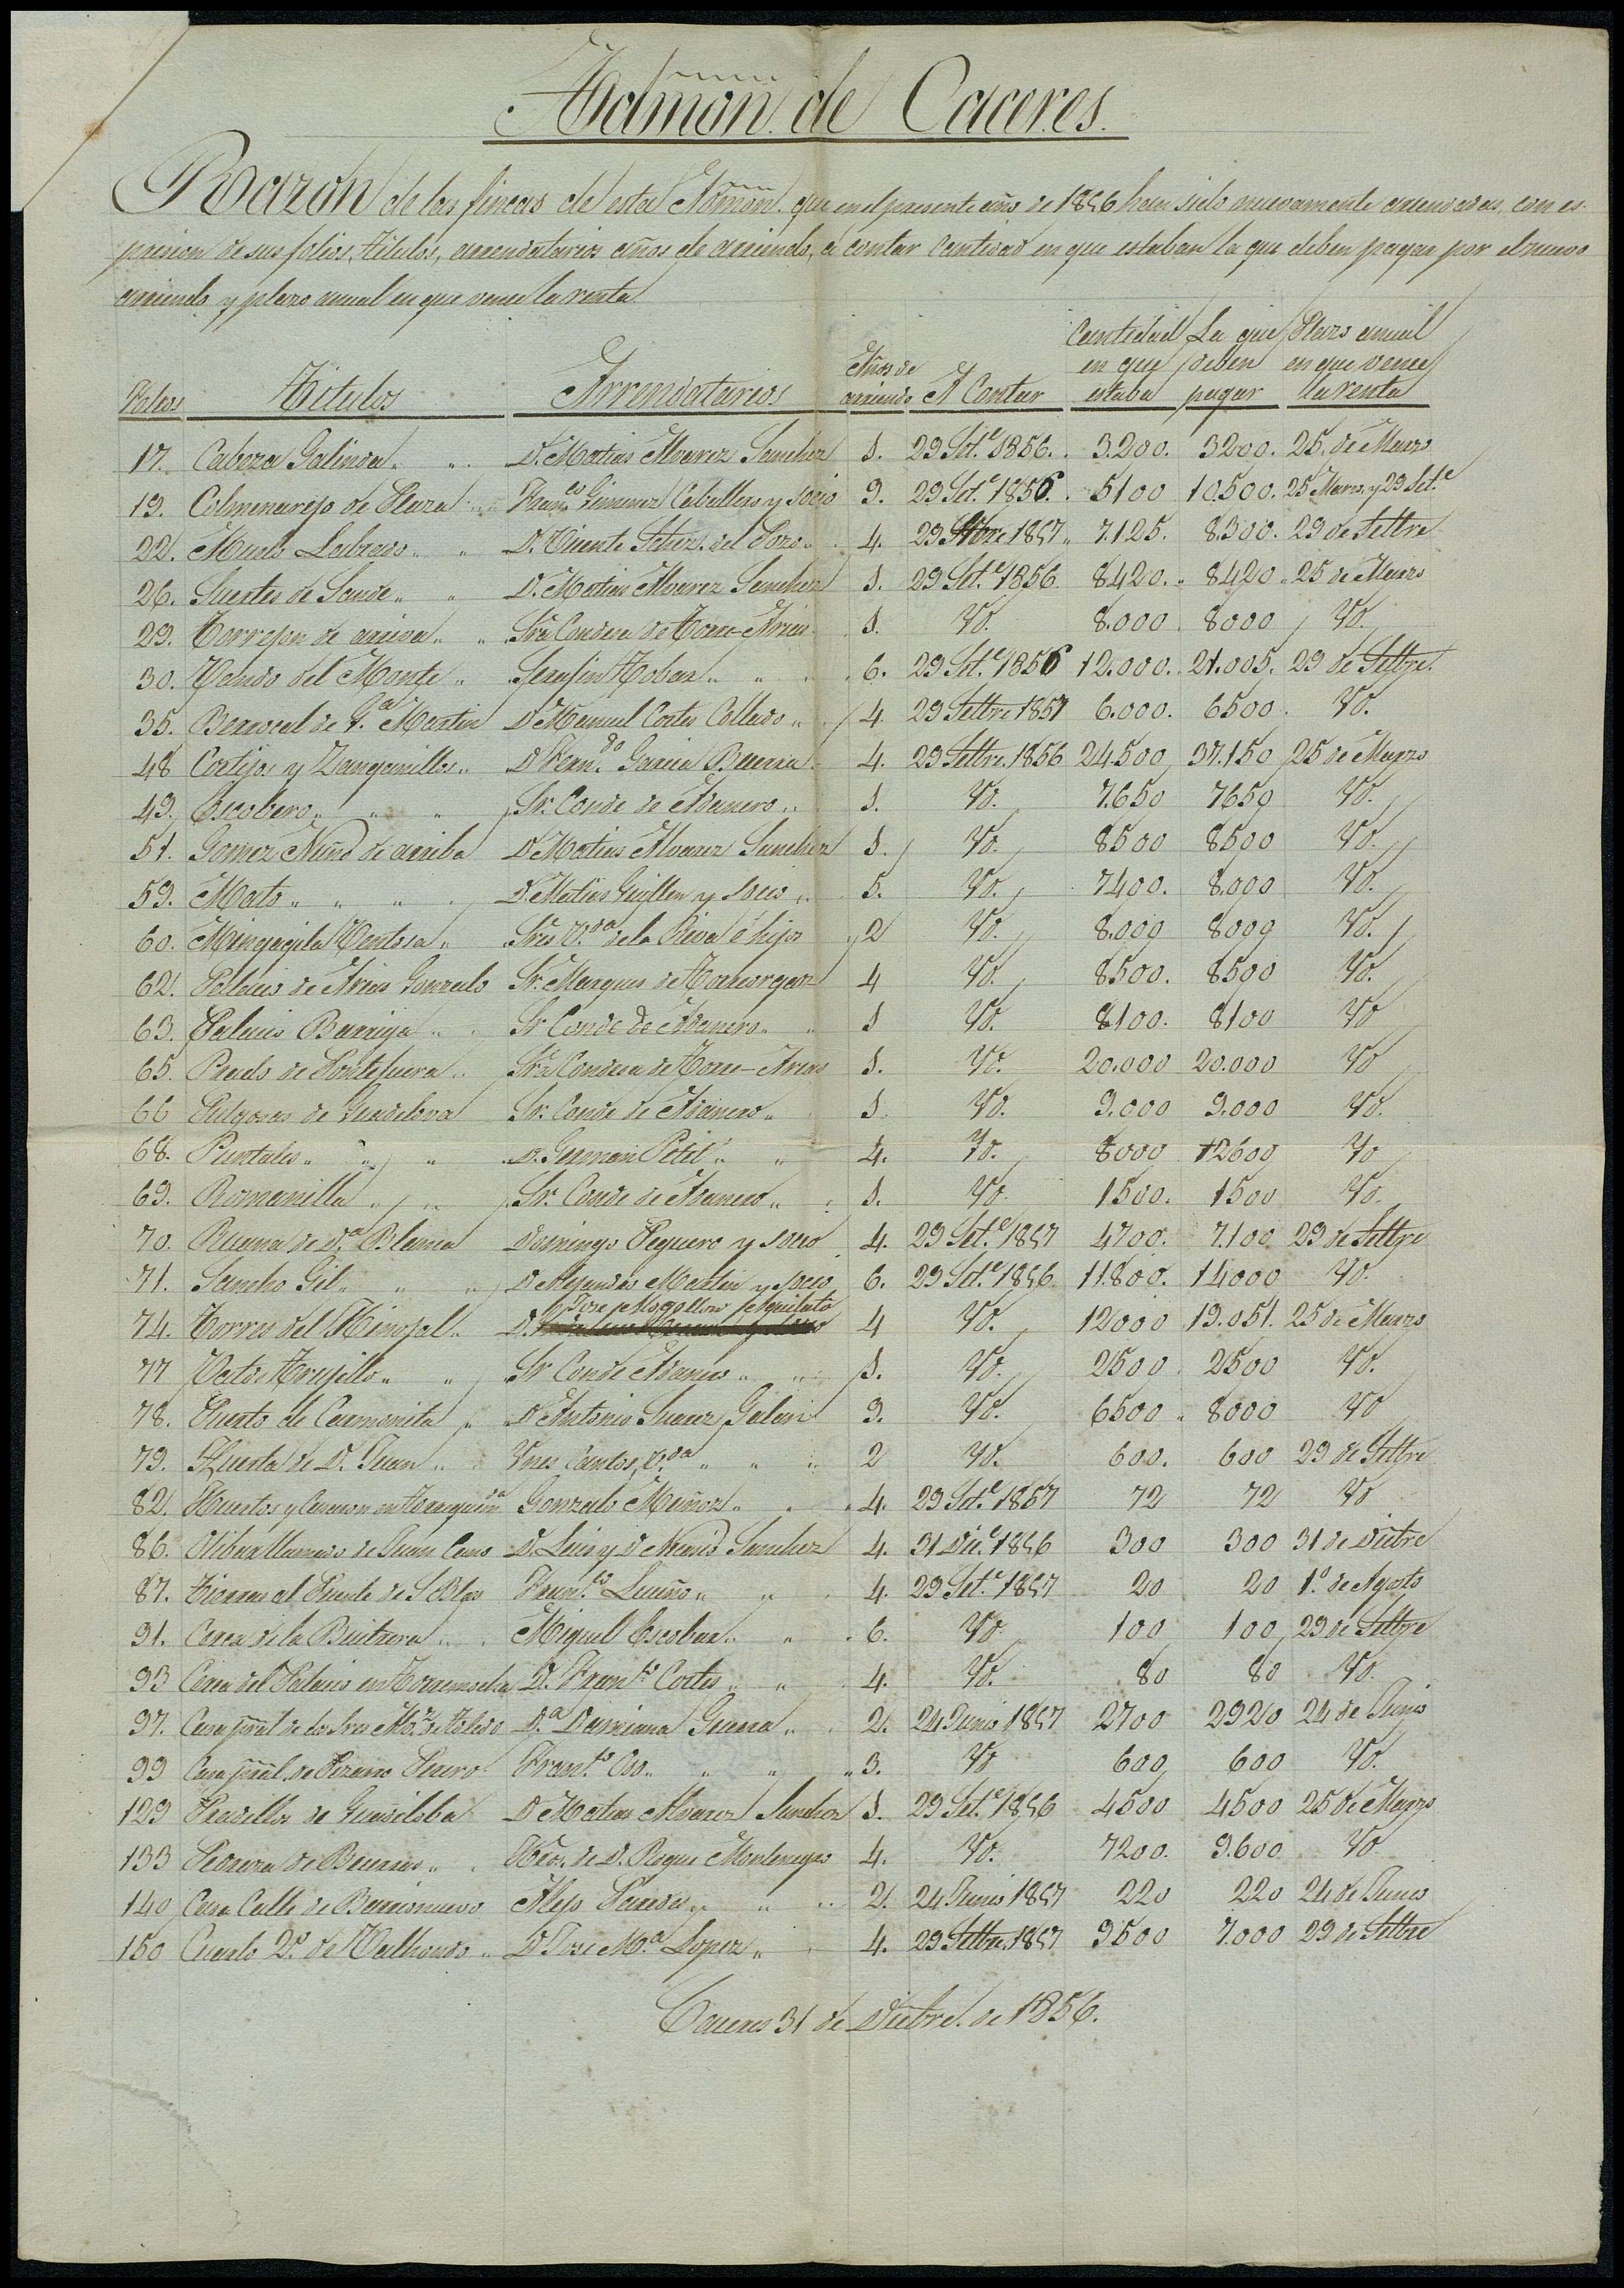 Admon. de Caceres.
Razon de las fincas de esta Admon. que en el presente año de 1856 han sido nuevamente arrendadas, con es-
presion de sus folios, titulos, arrendatarios años de arriendo, á contar cantidad en que estaban la que deben pagar por el nuevo
arriendo y plazo anual en que vence la renta
Folios Titulos Arrendatarios Años de arriendo A Contar Cantidad en que estaba La que deben pagar Plazo anual en que vence la renta
17. Cabeza Galinda D. Matias Alvarez Sanchez 1. 29 Set.e 1856. 3.200. 3200. 25. de Marzo
19. Colmenarejo de Plaza Fran.co Gimenez Caballero y socio 9. 29 Set.e 1856. 5100 10500. 25 Marzo y 29 Set.e
22. Labrado D. Vicente Schez. del Pozo 4. 29 1857 7.125. 8.300. 29 de Settre
26. Suertes de Sande D. Matias Alvarez Sanchez 1. 29 Set.e 1856 8420. 8420 25 de Marzo
29. Torrejon de arriva Sra. Condesa de Torre-Arias 1. Yd. 8.000 8000 Yd.
30. del Monte Serafin Tobar 6. 29 Set.e 1856 12.000. 21.005. 29 de Settre.
35. de Martin D Manuel Cortes Collado 4. 29 Settre 1857 6.000. 6500. Yd.
48 Cortijos y Zanganillos D Fern.do Garcia Becerra 4. 29 Settre. 1856 24.500 37.150 25 de Marzo
49. Escobero Sr. Conde de Adanero 1. Yd. 7.650 7650 Yd.
51. Gomez Nuño de arriba D Matias Alvarez Sanchez 1. Yd. 8500 8500 Yd.
59. Mato D. Matias Guillen y socio 5. Yd. 7400. 8.000 Yd.
60. Mingagila Ventosa Sres V.da de la Riva é hijos 2 Yd. 8.000 8000 Yd.
62. Palacio de Arias Gonzalo Sr. Marques de Torreorgaz 4 Yd. 8500. 8500 Yd.
63. Palacio Barriga Sr Conde de Adanero 1 Yd. 8100. 8100 Yd
65. Prado de Pontefuera Sra Condesa de Torre-Arias 1. Yd. 20.000 20.000 Yd
66 Pulgosas de Guadiloba Sr. Conde de Adanero 1 Yd. 9.000 9.000 Yd.
68. Puntales D. German Petit 4. Yd. 8000 12600 Yd
69. Romanilla Sr. Conde de Adanero 1. Yd. 1500. 1500 Yd.
70. de D.a Blanca Domingo Peguero y socio 4. 29 Set.e 1857 4700. 7.100 29 de Settre
71. Sancho Gil D Alejandro Martin y socio 6. 29 Set.e 1856 11.800. 14000 Yd.
74. Torres del Hinojal D. Jose Mogollon Aguilato 4 Yd. 12000 19.051. 25 de Marzo
77 Trujillo Sr Conde Adanero 1. Yd. 2500. 2500 Yd.
78. Puerto de Carmonita D Antonio Suarez Galan 9. Yd. 6500 8000 Yd
79. Huerta de D. Juan Ynes Cantos, V.da 2 Yd. 600. 600 29 de Settre
82. Huertos y en Gonzalo Muñoz 4. 29 Set.e 1857 72 72 Yd
86. Olibar llamado de Juan Cano D. Luis y D Sanchez 4. 31 Dic.e 1856 300 300 31 de Dicbre
87. Tierras al Puente de S Blas Fran.co 4. 29 Set.e 1857 20 20 1.o de Agosto
91. Cerca de la Buitrera Miguel Escobar 6. Yd. 100 100 29 de Settre
93 Cerca del Palacio en Torremocha D. Fran.co Cortes 4. Yd. 80 80 Yd.
97. Casa ppal. de los Sres de Toledo D.a Damiana Guerra 2. 24 Junio 1857 2700 2920 24 de Junio
99 Casa ppal. de Pizarro Fran.co Oso 3. Yd 600 600 Yd.
129 Pradillos de Guadiloba D Matias Alvarez Sanchez 1. 29 Set.e 1856 4500 4500 25 de Marzo
133 Pedrera de Becerras Hros. de D. Roque Montenegro 4. Yd. 7200. 9.600 Yd
140 Casa Calle de Barrionuevo Alejo Paredes 2. 24 Junio 1857 220 220 24 de Junio
150 Cuarto 2.o de Valhondo D Jose M.a Lopez 4. 29 Settre. 1857 9500 7.000 29 de Settre
Caceres 31 de Dicbre. de 1856.